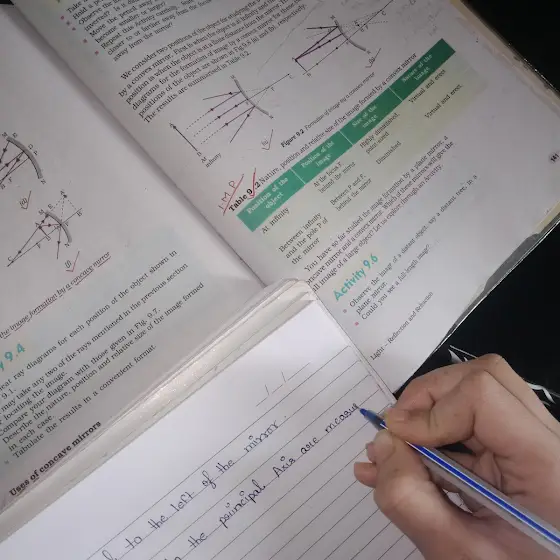 We consider two positions of the object for studying the
by a convex mirror. First is when the object is at infinity and the
position is when the object is at a finite distance from the mirror.
diagrams for the formation of image by a convex mirror for these
positions of the object are shown in Fig. 9.8 (a) and (b), respectively.
The results are summarised in Table 9.2.
At
infinity
Figure 9.2 Formation of image by a convex mirror
IMP
Table 9.2 Nature, position and relative size of the image formed by a convex mirror
Position of the object
Position of the image
Size of the image
Nature of the image
At infinity
At the focus F, behind the mirror
Highly diminished, point-sized
Virtual and erect
Between infinity and the pole P of the mirror
Between P and F, behind the mirror
Diminished
Virtual and erect
You have so far studied the image formation by a plane mirror, a
concave mirror and a convex mirror. Which of these mirrors will give the
full image of a large object? Let us explore through an Activity.
Activity 9.6
Observe the image of a distant object, say a distant tree, in a
plane mirror.
Could you see a full-length image?
Light – Reflection and Refraction
the image formed by a concave mirror
9.4
ray diagrams for each position of the object shown in
9.1.
may take any two of the rays mentioned in the previous section
locating the image.
Compare your diagram with those given in Fig. 9.7.
Describe the nature, position and relative size of the image formed
in each case.
Tabulate the results in a convenient format.
Uses of concave mirrors
to the left of the mirror
the principal Axis are measur